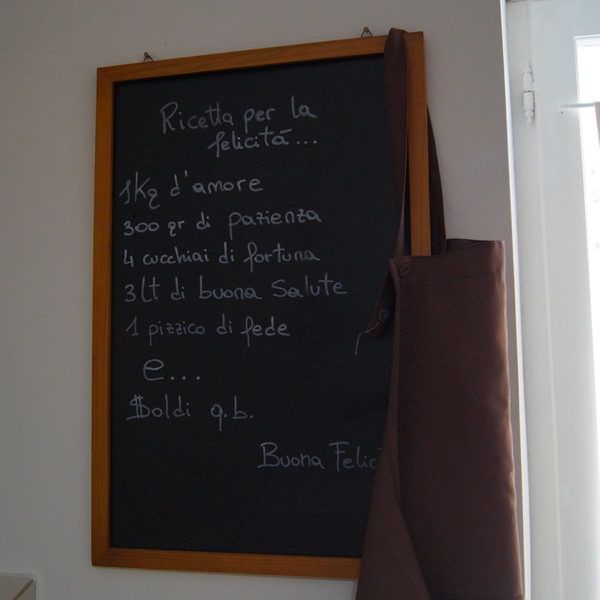 Ricetta per la
felicitá...
1Kg d'amore
300 gr di pazienza
4 cucchiai di fortuna
3Lt di buona salute
1 pizzico di fede
e...
$oldi q.b.
Buona Felic